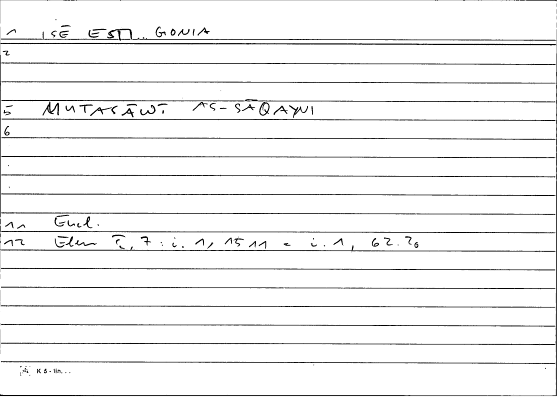 1 ISĒ ESTI... GONIA
2
5 MUTASĀWĪ AS-SĀQAYNI
6
11 Eucl.
12 Elem I, 7 : i. 1, 15 11 = i. 1, 62.